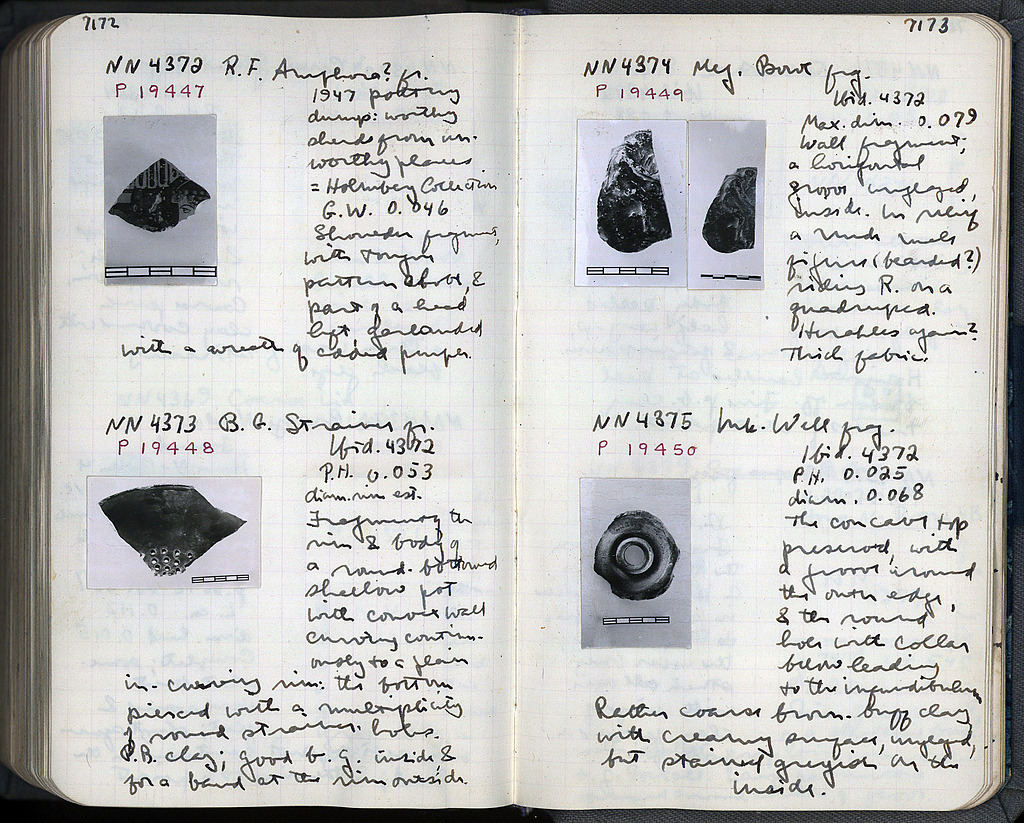 7172
NN 4372 R.F. Amphora? fr.
P 19447
1947 pottery
dump: worthy
sherds from un-
worthy places
= Holmberg Collection
G.W. 0.046
Shoulder fragment,
with tongue
pattern above, &
part of a head
left, garlanded
with a wreath of added purple.
NN 4373 B.G. Strainer fr.
P 19448
Ibid. 4372
P.H. 0.053
diam. rim est.
Fragmentary the
rim & body of
a round-bottomed
shallow pot
with convex wall
curving contin-
uously to a plain
in-curving rim: the bottom
pierced with a multiplicity
of round strainer holes.
P.B. clay; good b.g. inside &
for a band at the rim outside.
7173
NN 4374 Meg. Bowl frg.
P 19449
Ibid. 4372
Max. dim. 0.079
Wall fragment;
a horizontal
groove unglazed,
inside. In relief
a nude male
figure (bearded?)
riding R. on a
quadruped.
Herakles again?
Thick fabric.
NN 4375 Ink-Well frg.
P 19450
Ibid. 4372
P.H. 0.025
diam. 0.068
The concave top
preserved, with
a groove around
the outer edge,
& the round
hole with collar
below leading
to the infundibulum
Rather coarse brown-buff clay
with creamy surface, unglazed,
but stained greyish on the
inside.